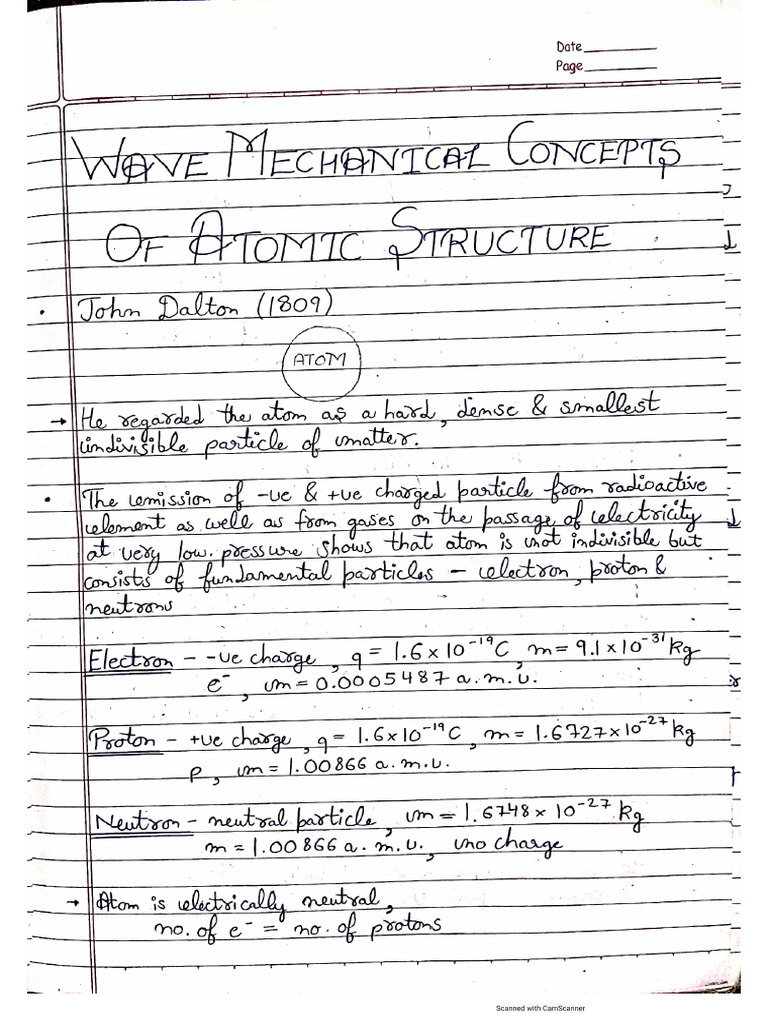 Date
Page
WAVE MECHANICAL CONCEPTS
OF ATOMIC STRUCTURE
• John Dalton (1809)
ATOM
→ He regarded the atom as a hard, dense & smallest
indivisible particle of matter.
• The emission of -ve & +ve charged particle from radioactive
element as well as from gases on the passage of electricity
at very low pressure shows that atom is not indivisible but
consists of fundamental particles - electron, proton &
neutrons
Electron - -ve charge, q = 1.6 x 10⁻¹⁹ C, m = 9.1 x 10⁻³¹ kg
e⁻, m = 0.0005487 a.m.u.
Proton - +ve charge, q = 1.6 x 10⁻¹⁹ C, m = 1.6727 x 10⁻²⁷ kg
p, m = 1.00866 a.m.u.
Neutron - neutral particle, m = 1.6748 x 10⁻²⁷ kg
m = 1.00866 a.m.u., no charge
→ Atom is electrically neutral,
no. of e⁻ = no. of protons
Scanned with CamScanner